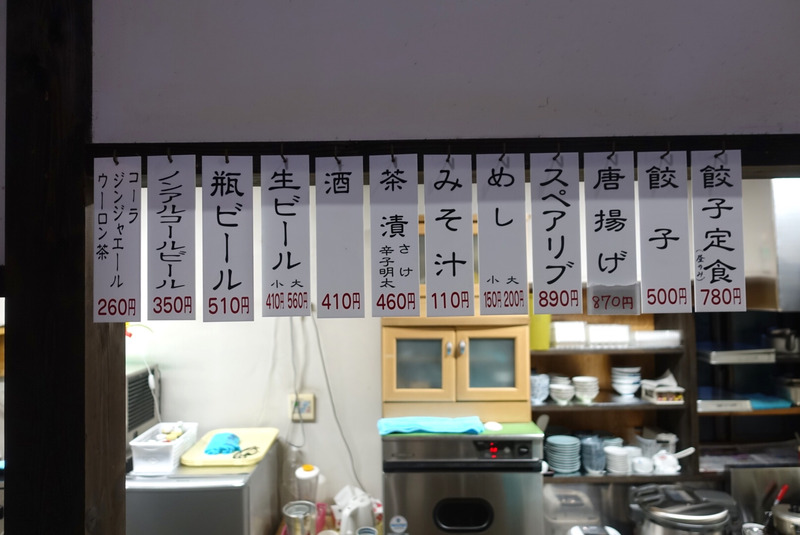 餃子定食
780円
餃子
500円
唐揚げ
870円
スペアリブ
890円
めし
小 大
150円 200円
みそ汁
110円
茶漬
さけ
辛子明太
460円
酒
410円
生ビール
小 大
410円 560円
瓶ビール
510円
ノンアルコールビール
350円
コーラ
ジンジャエール
ウーロン茶
260円